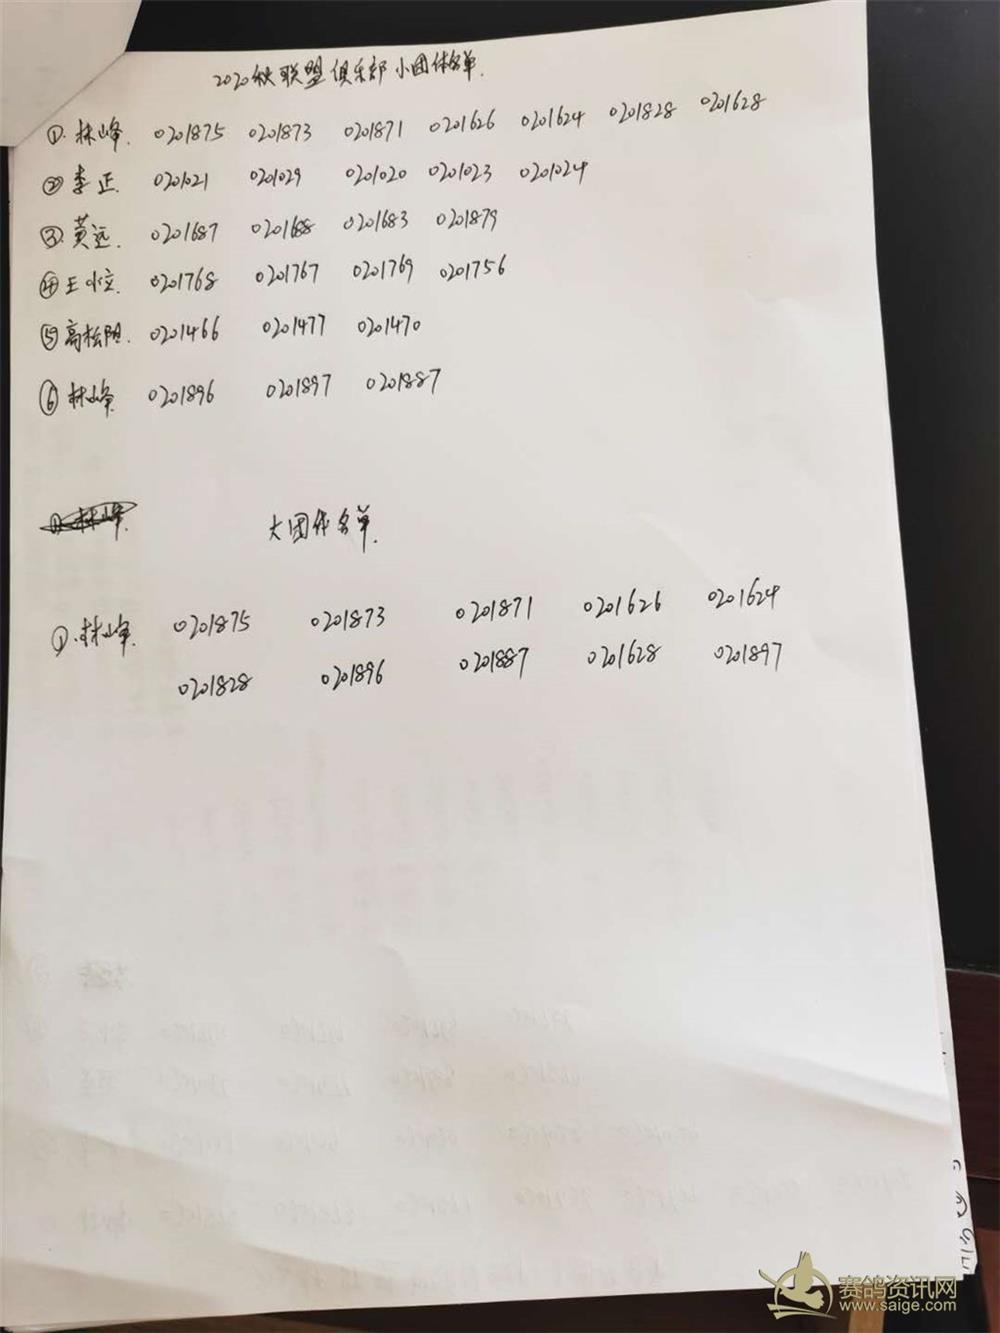 2020秋联盟俱乐部小团体名单.
①.林峰. 0201875 0201873 0201871 0201626 0201624 0201828 0201628
② 李正. 0201021 0201029 0201020 0201023 0201024
③.黄远. 0201687 0201688 0201683 0201879
④王小立. 0201768 0201767 0201769 0201756
⑤高松阳. 0201466 0201477 0201470
⑥ 林峰. 0201896 0201897 0201887
大团体名单.
①.林峰. 0201875 0201873 0201871 0201626 0201624
0201828 0201896 0201887 0201628 0201897
赛鸽资讯网
www.saige.com